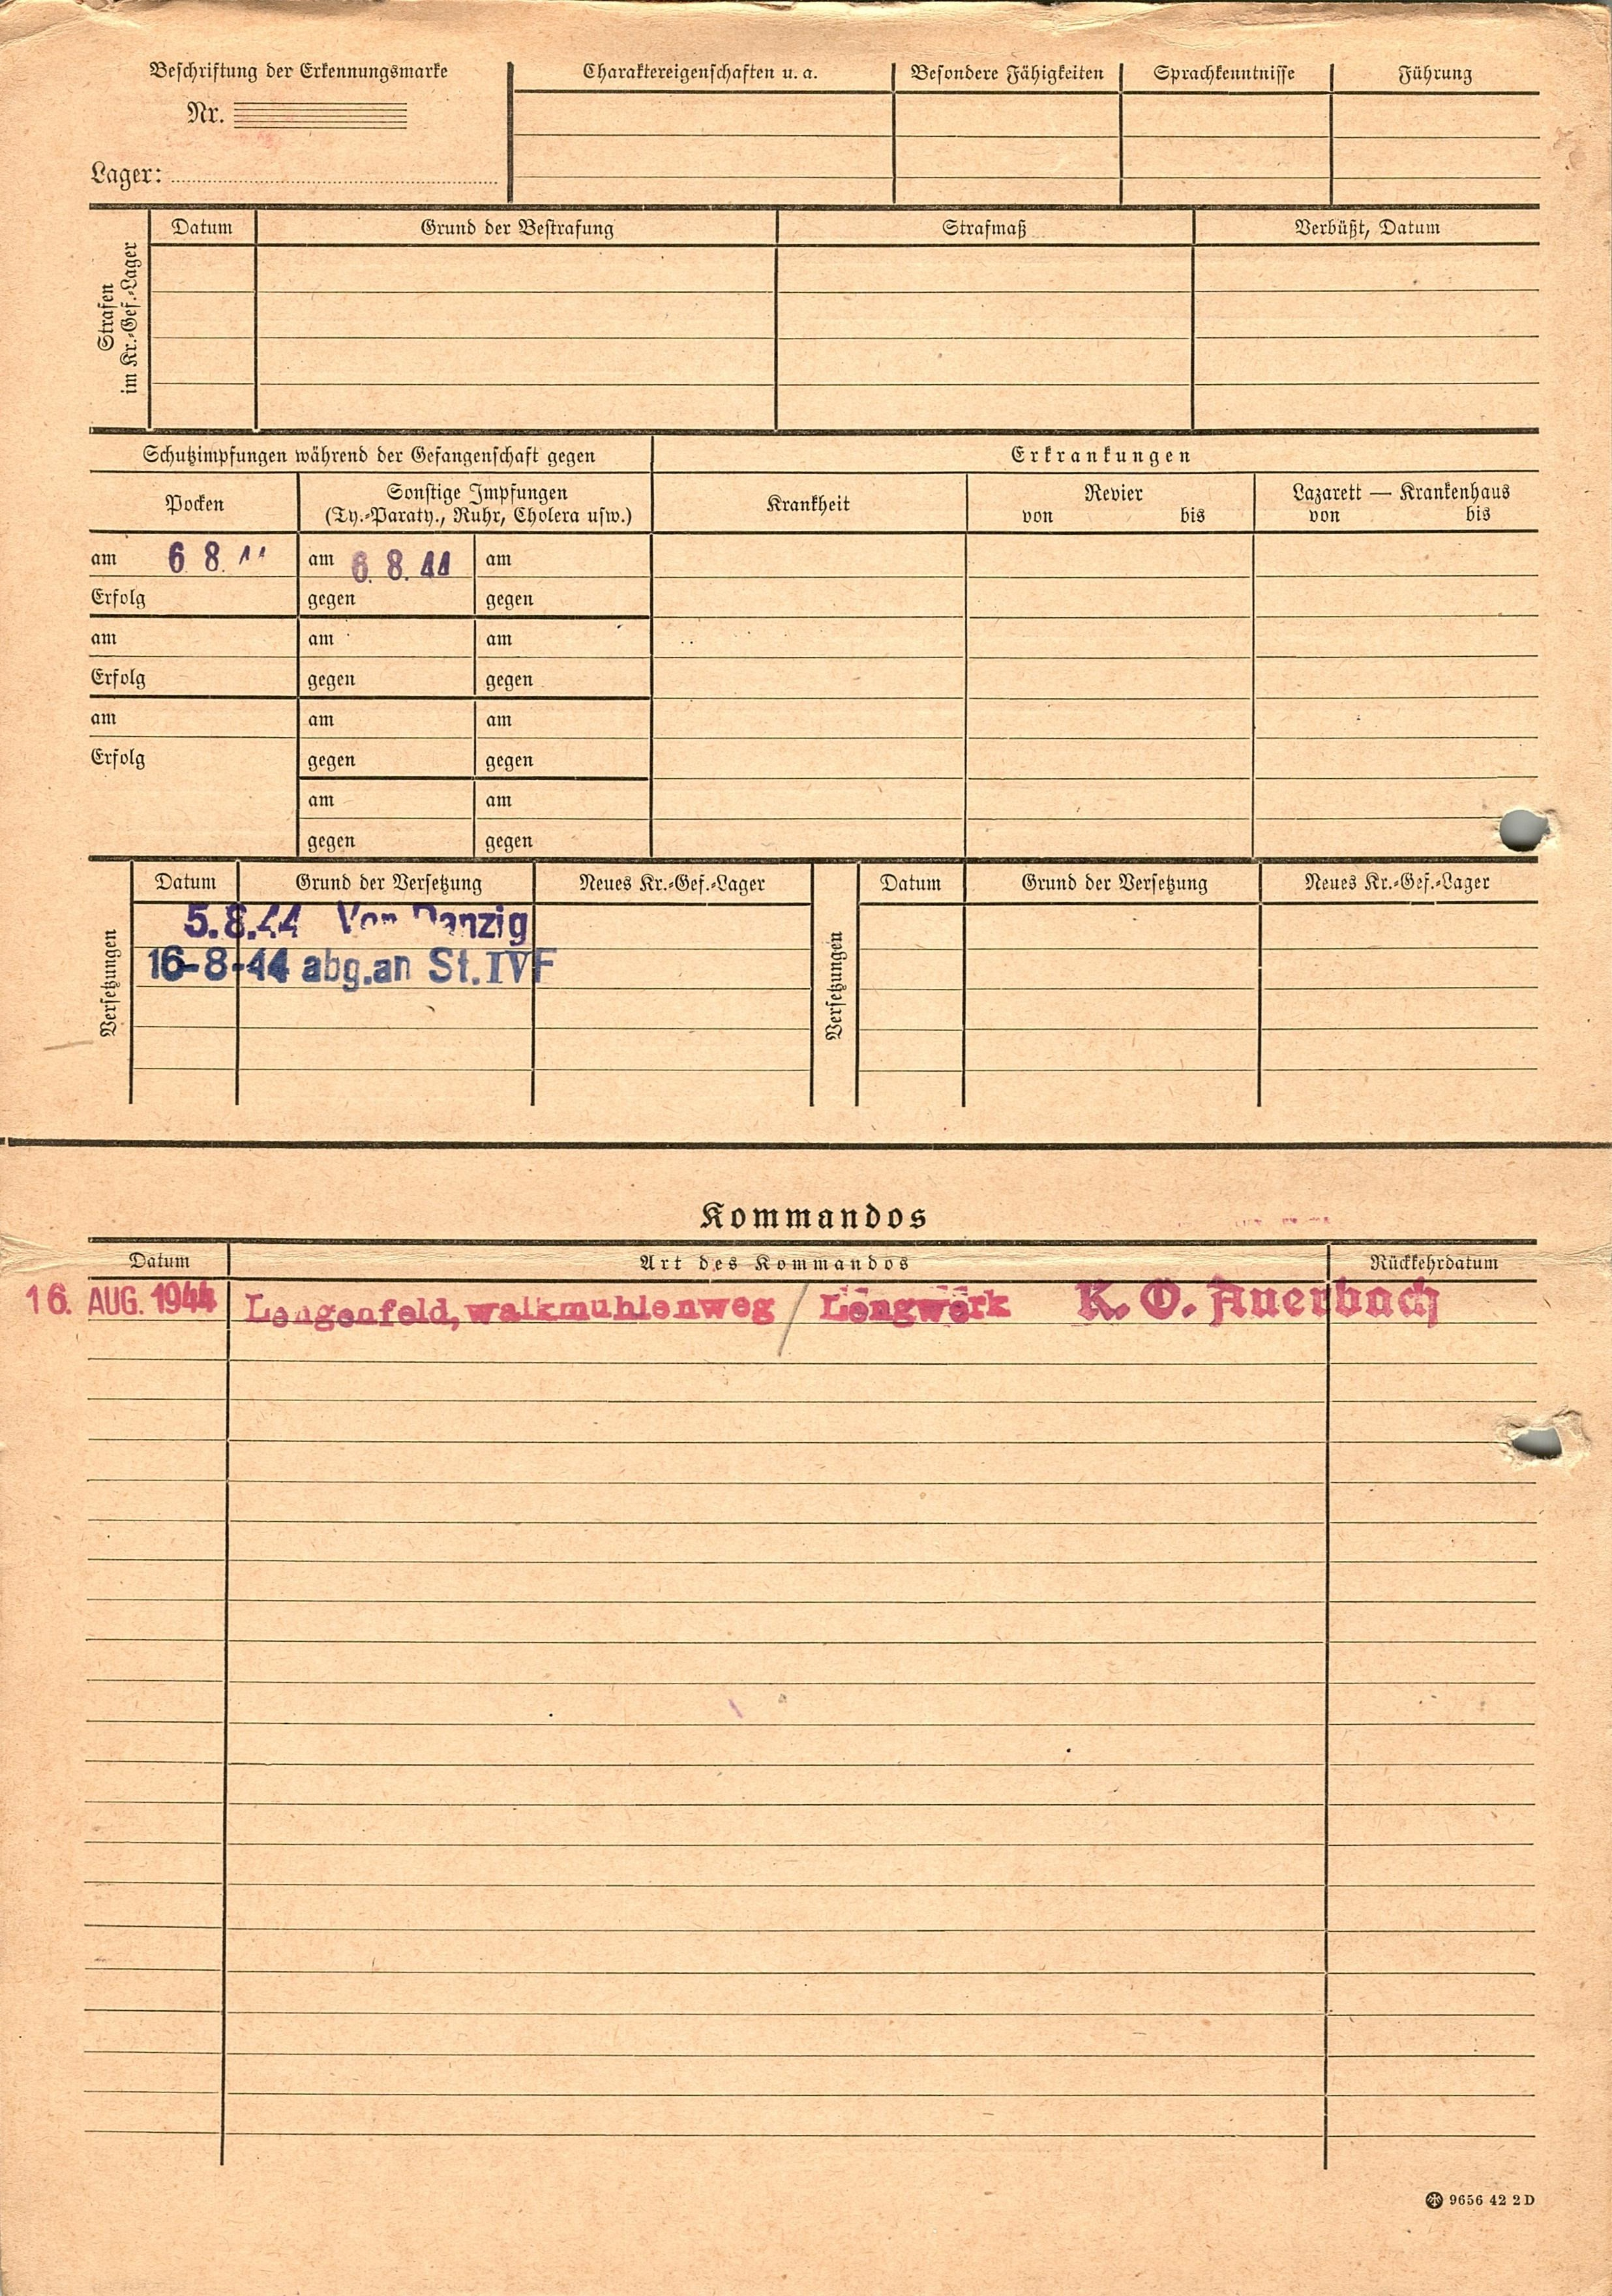 Beschriftung der Erkennungsmarke
Nr.
Lager:
Charaktereigenschaften u. a.
Besondere Fähigkeiten
Sprachkenntnisse
Führung
Strafen
im Kr.-Gef.-Lager
Datum
Grund der Bestrafung
Strafmaß
Verbüßt, Datum
Schutzimpfungen während der Gefangenschaft gegen
Erkrankungen
Pocken
Sonstige Impfungen
(Ty.-Paraty., Ruhr, Cholera usw.)
Krankheit
Revier
von bis
Lazarett — Krankenhaus
von bis
am 6 8. am 6. 8. 44 am
Erfolg gegen gegen
am am am
Erfolg gegen gegen
am am am
Erfolg gegen gegen
am am
gegen gegen
Versetzungen
Datum Grund der Versetzung Neues Kr.-Gef.-Lager
5.8.44 Von Danzig
16-8-44 abg.an St.IVF
Versetzungen
Datum Grund der Versetzung Neues Kr.-Gef.-Lager
Kommandos
Datum Art des Kommandos Rückkehrdatum
16. AUG. 1944 Lengenfeld, walkmuhlenweg / Lengwerk K. O. Auerbach
9656 42 2 D